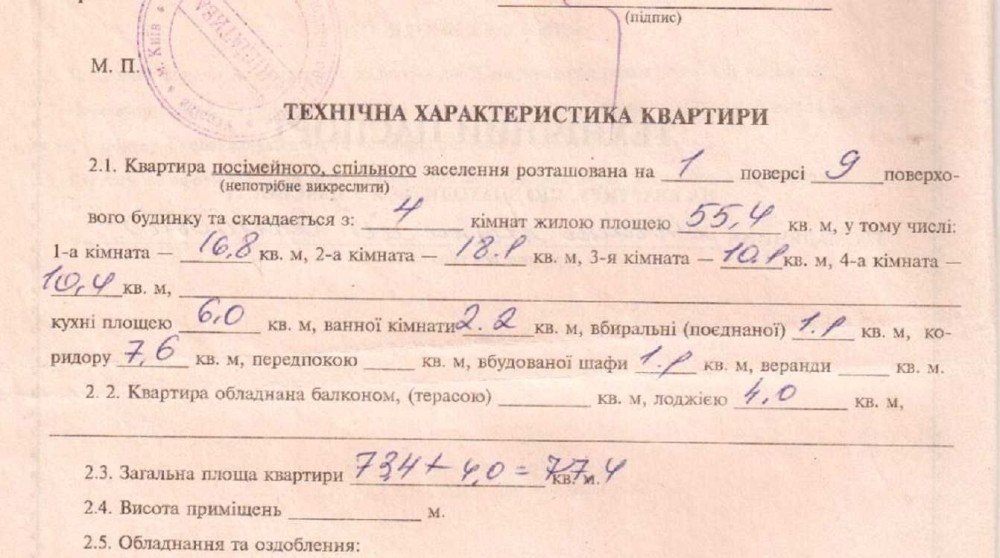 (підпис)
М. П.
* м. Київ *
ТЕХНІЧНА ХАРАКТЕРИСТИКА КВАРТИРИ
2.1. Квартира посімейного, спільного заселення розташована на 1 поверсі 9 поверхо-
(непотрібне викреслити)
вого будинку та складається з: 4 кімнат жилою площею 55,4 кв. м, у тому числі:
1-а кімната — 16,8 кв. м, 2-а кімната — 18.1 кв. м, 3-я кімната — 10.1 кв. м, 4-а кімната —
10,4 кв. м,
кухні площею 6,0 кв. м, ванної кімнати 2.2 кв. м, вбиральні (поєднаної) 1.1 кв. м, ко-
ридору 7,6 кв. м, передпокою ____ кв. м, вбудованої шафи 1.1 кв. м, веранди ____ кв. м.
2. 2. Квартира обладнана балконом, (терасою) ________ кв. м, лоджією 4,0 кв. м,
2.3. Загальна площа квартири 73,4 + 4,0 = 77.4 кв. м.
2.4. Висота приміщень ____________ м.
2.5. Обладнання та оздоблення: